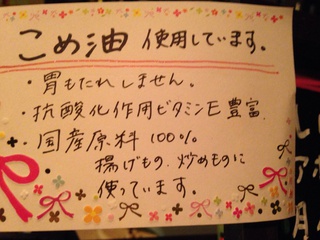 こめ油 使用しています。
・胃もたれしません。
・抗酸化作用ビタミンE豊富
・国産原料 100%
揚げもの、炒めものに
使っています。